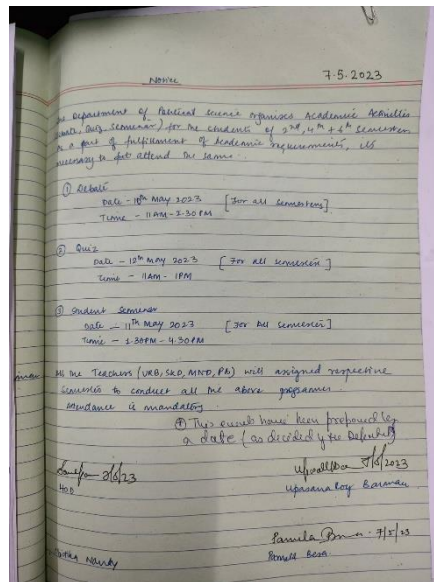 Notice 7.5.2023
The Department of Political Science organises Academic Activities
(Debate, Quiz, Seminar) for the students of 2nd, 4th & 6th Semesters
As a part of fulfillment of Academic requirements, its
necessary to attend the same.
① Debate
Date - 10th May 2023 [For all semesters]
Time - 11AM - 2.30 PM
② Quiz
Date - 12th May 2023 [For all semester]
Time - 11AM - 1PM
③ Student Seminar
Date - 11th May 2023 [For all semester]
Time - 1.30PM - 4.30PM
All the Teachers (URB, SKD, MND, PB) will assigned respective
Semester to conduct all the above programme
Attendance is mandatory.
④ This events have been preponed by
a date (as decided by the Department)
HOD
Upasana Roy Barman
7/5/23
Nandy